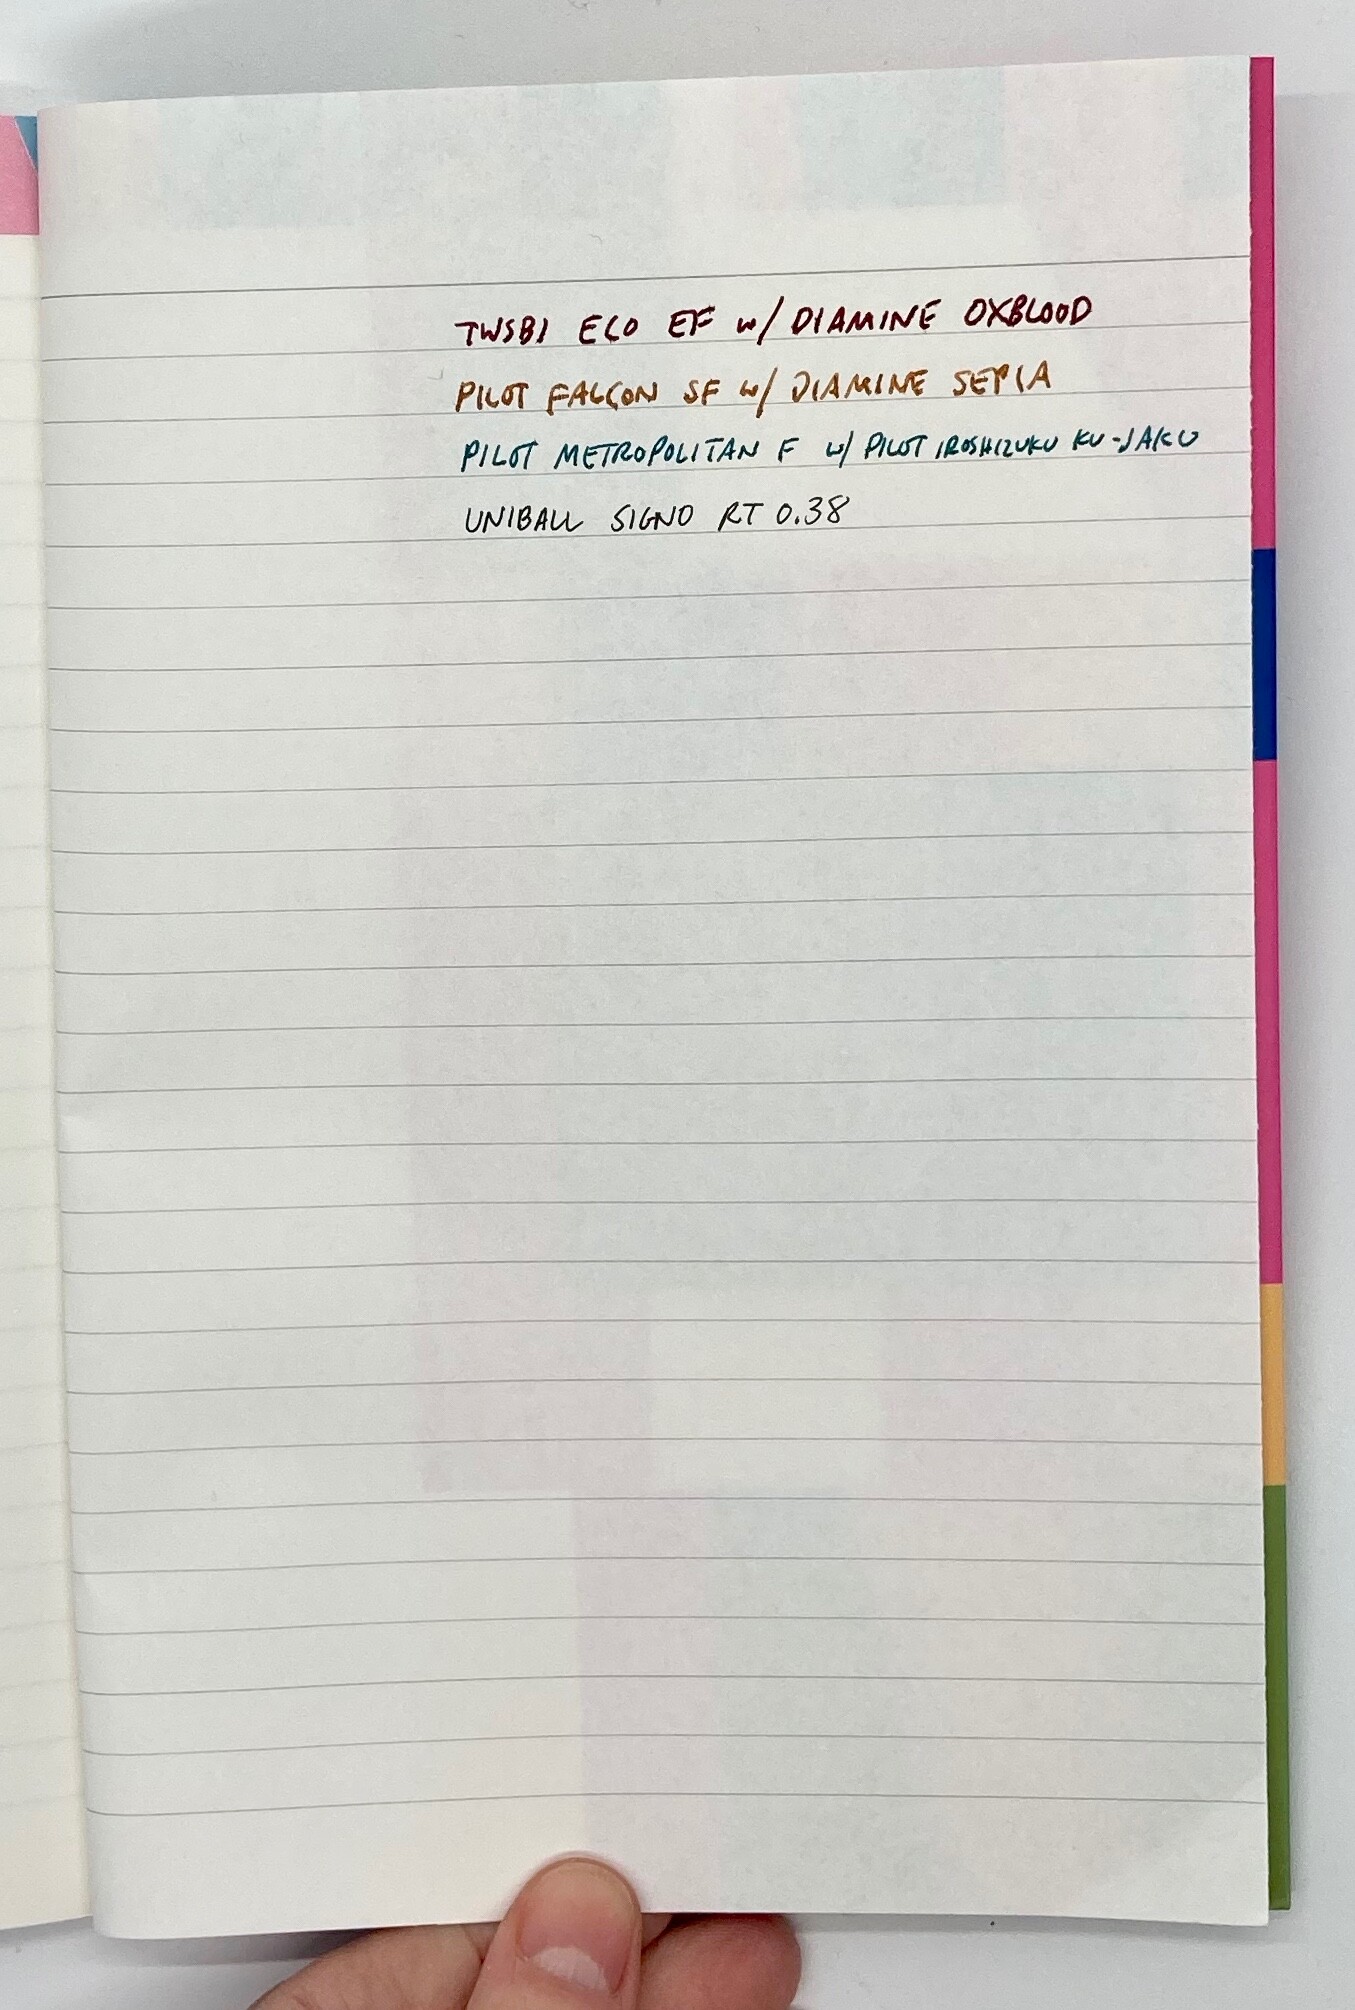 TWSBI ECO EF w/ DIAMINE OXBLOOD
PILOT FALCON SF w/ DIAMINE SEPIA
PILOT METROPOLITAN F w/ PILOT IROSHIZUKU KU-JAKU
UNIBALL SIGNO RT 0.38